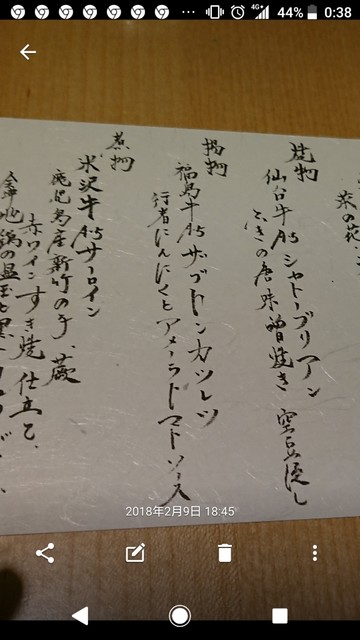 44% 0:38
菜の花
焼物
仙台牛A5シャトーブリアン
ふきの唐味噌焼き 空豆浸し
揚物
福島牛A5ザブトンカツレツ
行者にんにくとアメーラトマトソース
煮物
米沢牛A5サーロイン
鹿児島産新竹の子、蕨
赤ワインすき焼仕立て、
会津地鶏の温玉と黒
2018年2月9日 18:45